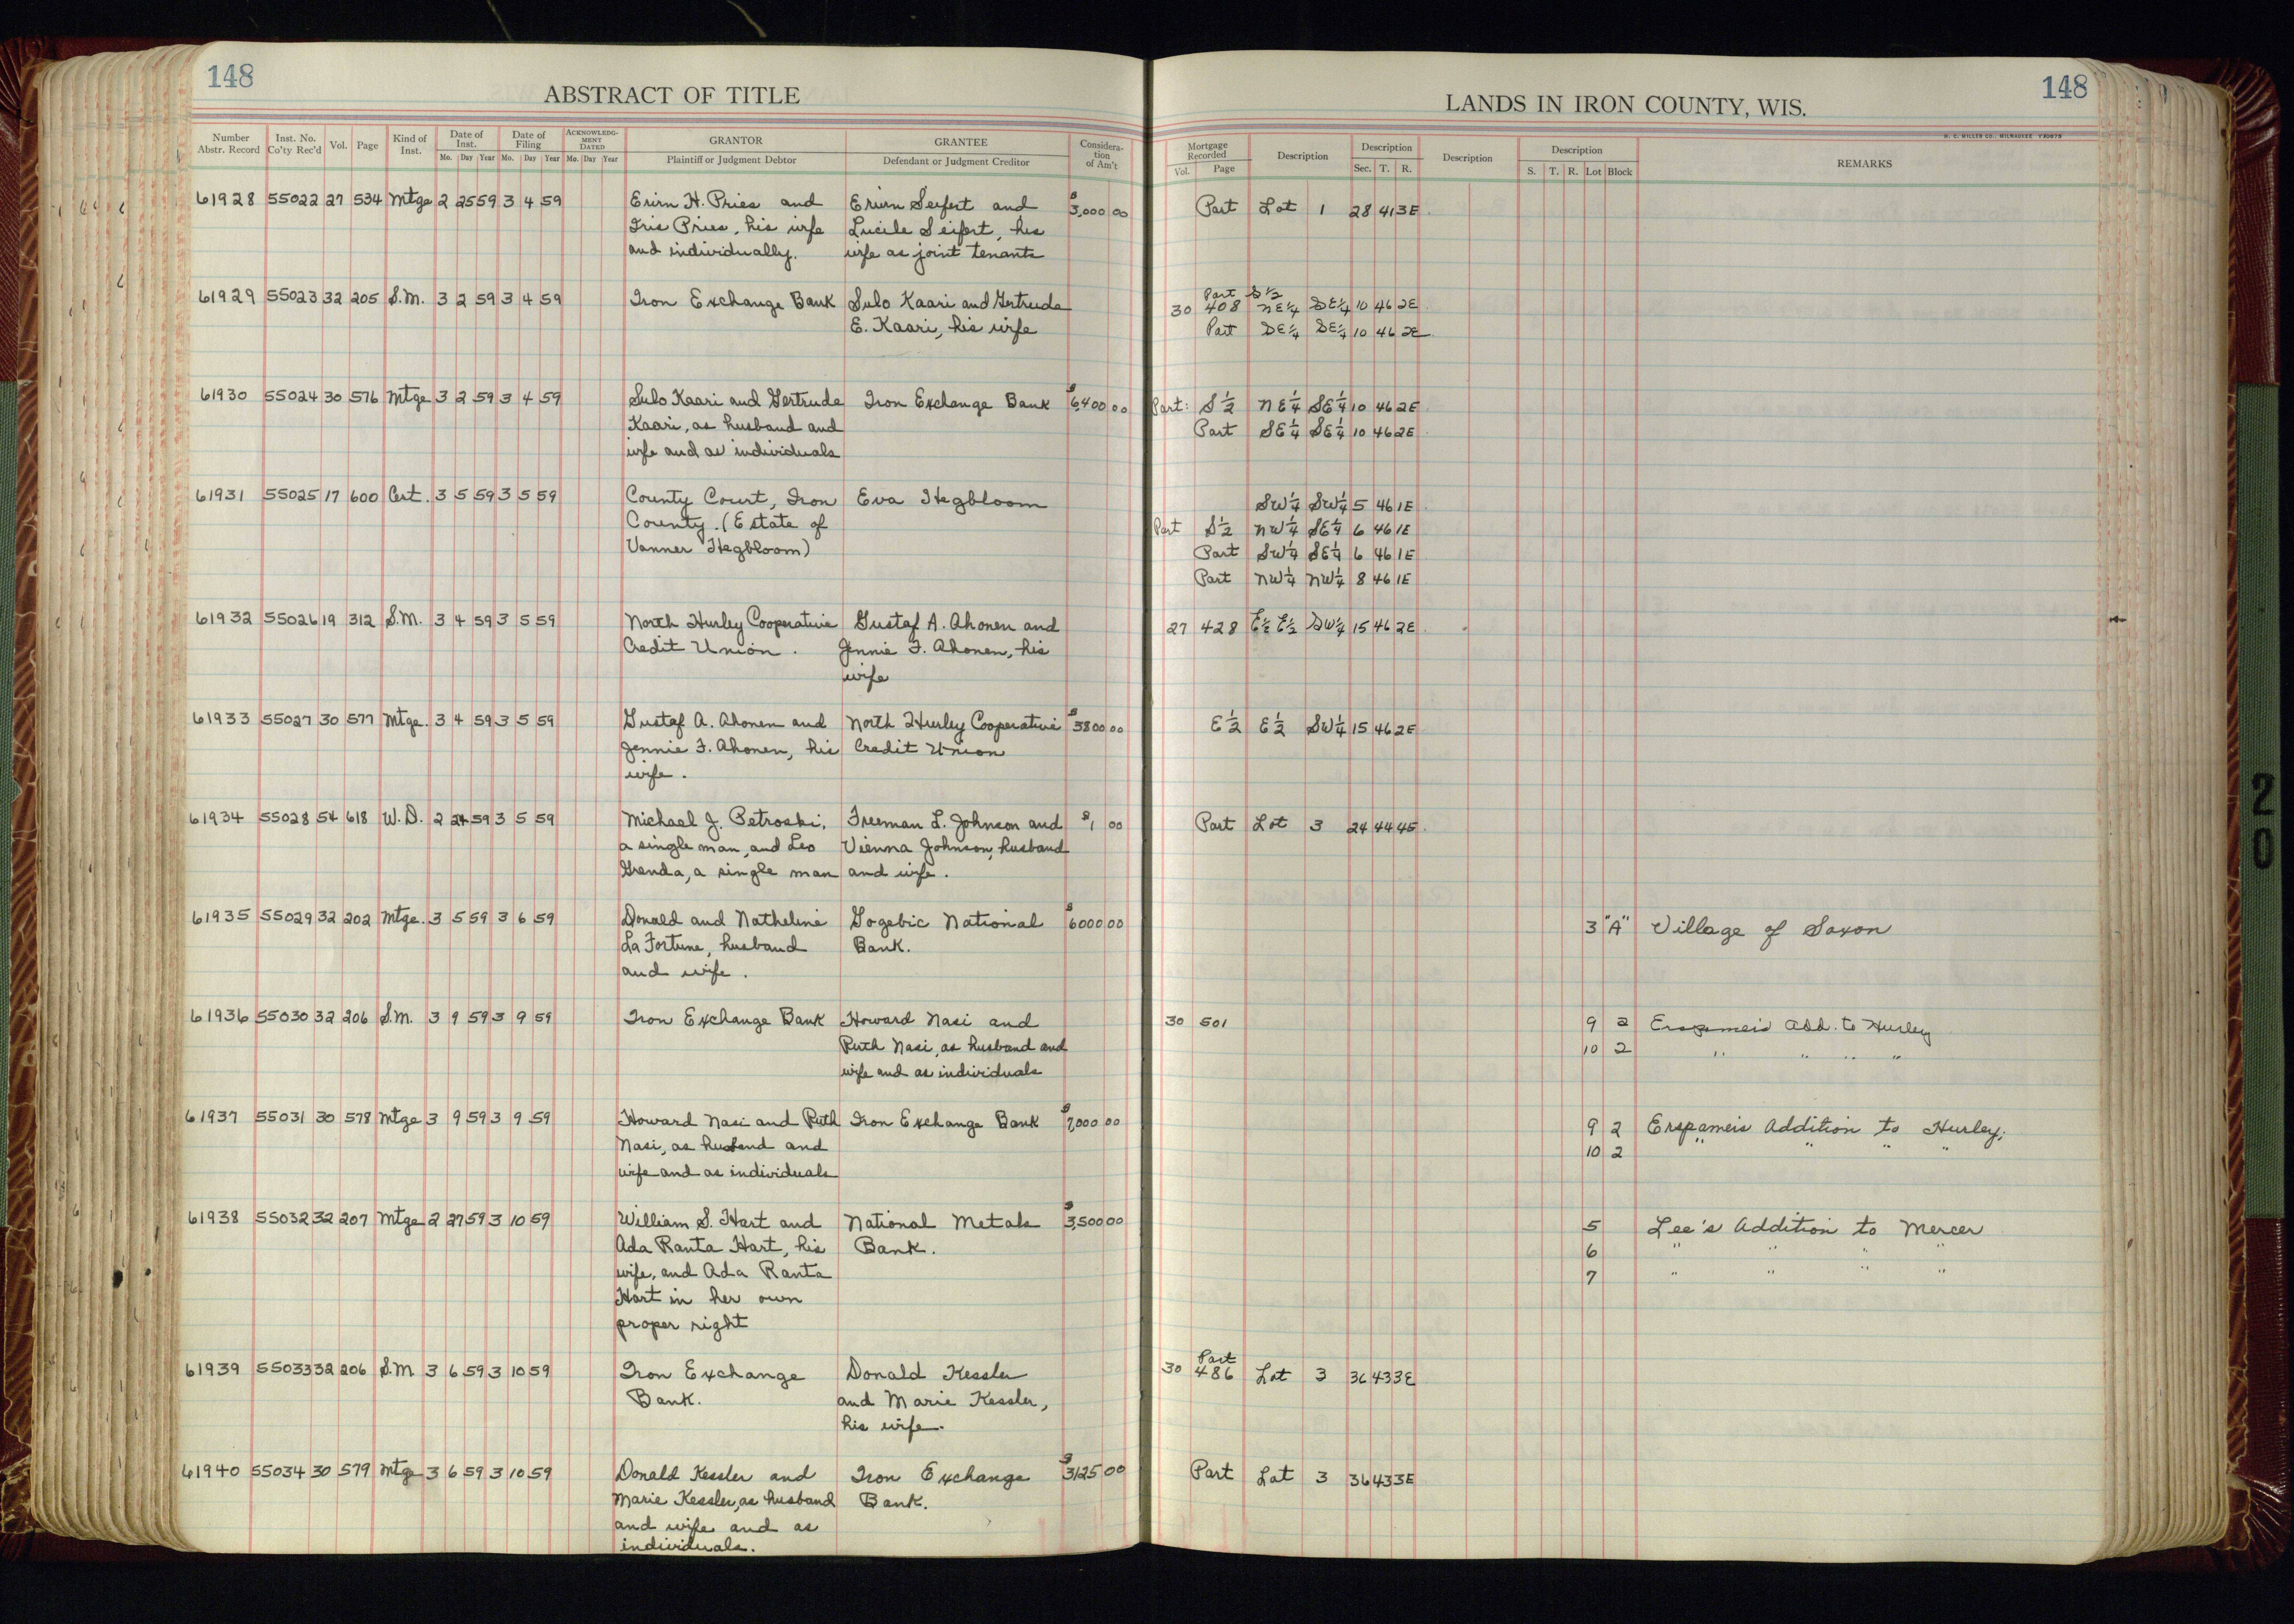 148
ABSTRACT OF TITLE
Number Abstr. Record Inst. No. Co'ty Rec'd Vol. Page Kind of Inst. Date of Inst. Mo. Day Year Date of Filing Mo. Day Year ACKNOWLEDGMENT DATED Mo. Day Year GRANTOR Plaintiff or Judgment Debtor GRANTEE Defendant or Judgment Creditor Consideration of Am't
LANDS IN IRON COUNTY, WIS.
148
H. C. MILLER CO., MILWAUKEE
Mortgage Recorded Vol. Page Description Description Sec. T. R. Description Description S. T. R. Lot Block REMARKS
61928 55022 27 534 Mtge 2 25 59 3 4 59 Erwin H. Pries and Erwin Seifert and $3,000 00 Part Lot 1 28 41 3E
Iris Pries, his wife Lucile Seifert, his
and individually. wife as joint tenants
61929 55023 32 205 S.M. 3 2 59 3 4 59 Iron Exchange Bank Sulo Kaari and Gertrude 30 408 Part S½ NE¼ SE¼ 10 46 2E
E. Kaari, his wife Part SE¼ SE¼ 10 46 2E
61930 55024 30 576 Mtge 3 2 59 3 4 59 Sulo Kaari and Gertrude Iron Exchange Bank $6,400 00 Part: S½ NE¼ SE¼ 10 46 2E
Kaari, as husband and Part SE¼ SE¼ 10 46 2E
wife and as individuals
61931 55025 17 600 Cert. 3 5 59 3 5 59 County Court, Iron Eva Hegbloom SW¼ SW¼ 5 46 1E
County. (Estate of Part S½ NW¼ SE¼ 6 46 1E
Vanner Hegbloom) Part SW¼ SE¼ 6 46 1E
Part NW¼ NW¼ 8 46 1E
61932 55026 19 312 S.M. 3 4 59 3 5 59 North Hurley Cooperative Gustaf A. Ahonen and 27 428 E½ E½ SW¼ 15 46 2E
Credit Union. Jennie F. Ahonen, his
wife
61933 55027 30 577 Mtge. 3 4 59 3 5 59 Gustaf A. Ahonen and North Hurley Cooperative $3800 00 E½ E½ SW¼ 15 46 2E
Jennie F. Ahonen, his Credit Union
wife.
61934 55028 54 618 W.D. 2 24 59 3 5 59 Michael J. Petroski, Freeman L. Johnson and $1 00 Part Lot 3 24 44 4E
a single man, and Leo Vienna Johnson, husband
Grenda, a single man and wife.
61935 55029 32 202 Mtge. 3 5 59 3 6 59 Donald and Nathelene Gogebic National $6000 00 3 "A" Village of Saxon
La Fortune, husband Bank.
and wife.
61936 55030 32 206 S.M. 3 9 59 3 9 59 Iron Exchange Bank Howard Nasi and 30 501 9 2 Erspameis Add. to Hurley
Ruth Nasi, as husband and 10 2 " " " "
wife and as individuals
61937 55031 30 578 Mtge 3 9 59 3 9 59 Howard Nasi and Ruth Iron Exchange Bank $7,000 00 9 2 Erspameis Addition to Hurley;
Nasi, as husband and 10 2 " " " "
wife and as individuals
61938 55032 32 207 Mtge 2 27 59 3 10 59 William S. Hart and National Metals $3,500 00 5 Lee's Addition to Mercer
Ada Ranta Hart, his Bank. 6 " " " "
wife, and Ada Ranta 7 " " " "
Hart in her own
proper right
61939 55033 32 206 S.M. 3 6 59 3 10 59 Iron Exchange Donald Kessler 30 486 Part Lot 3 36 43 3E
Bank. and Marie Kessler,
his wife.
61940 55034 30 579 Mtge 3 6 59 3 10 59 Donald Kessler and Iron Exchange $3125 00 Part Lot 3 36 43 3E
Marie Kessler, as husband Bank.
and wife and as
individuals.
20